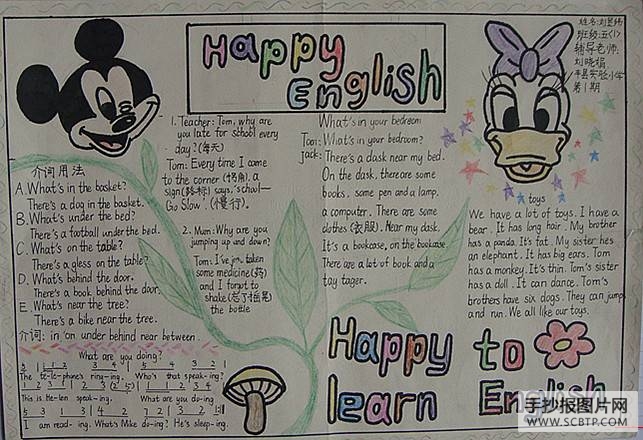 Happy
English
姓名:刘
班级:五(1)
辅导老师:
刘晓娟
平昌实验小学
第1期
1. Teacher: Tom, why are
you late for school every
day? (每天)
Tom: Every time I came
to the corner (拐角), a
sign (路标) says, "school—
Go Slow". (慢行).
2. Mum: Why are you
jumping up and down?
Tom: I've jng taken
some medicine (药)
and I forgot to
shake (忘了摇晃)
the bottle
介词用法
A. What's in the basket?
There's a dog in the basket.
B. What's under the bed?
There's a football under the bed.
C. What's on the table?
There's a gless on the table?
D. What's behind the door.
There's a book behind the door.
E. What's near the tree?
There's a bike near the tree.
介词: in on under behind near between.
What are you doing?
The te-le-phone's ring-ing. Who's that speak-ing?
This is He-len speak-ing. What are you do-ing
I am read-ing. What's Mike do-ing? He's sleep-ing.
What's in your bedroom
Tom: What's in your bedroom?
jack: There's a dask near my bed.
On the dask, there are some
books, some pen and a lamp,
a computer. There are some
clothes (衣服). Near my dask.
It's a bookcase, on the bookcase
There are a lot of book and a
toy tager.
toys
We have a lot of toys. I have a
bear. It has long hair. My brother
has a panda. It's fat. My sister hes
an elephant. It has big ears. Tom
has a monkey. It's thin. Tom's sister
has a doll. It can dance. Tom's
brothers have six dogs. They can jump
and run. We all like our toys.
Happy to
learn English
手抄报图片网
WWW.SCBTP.COM